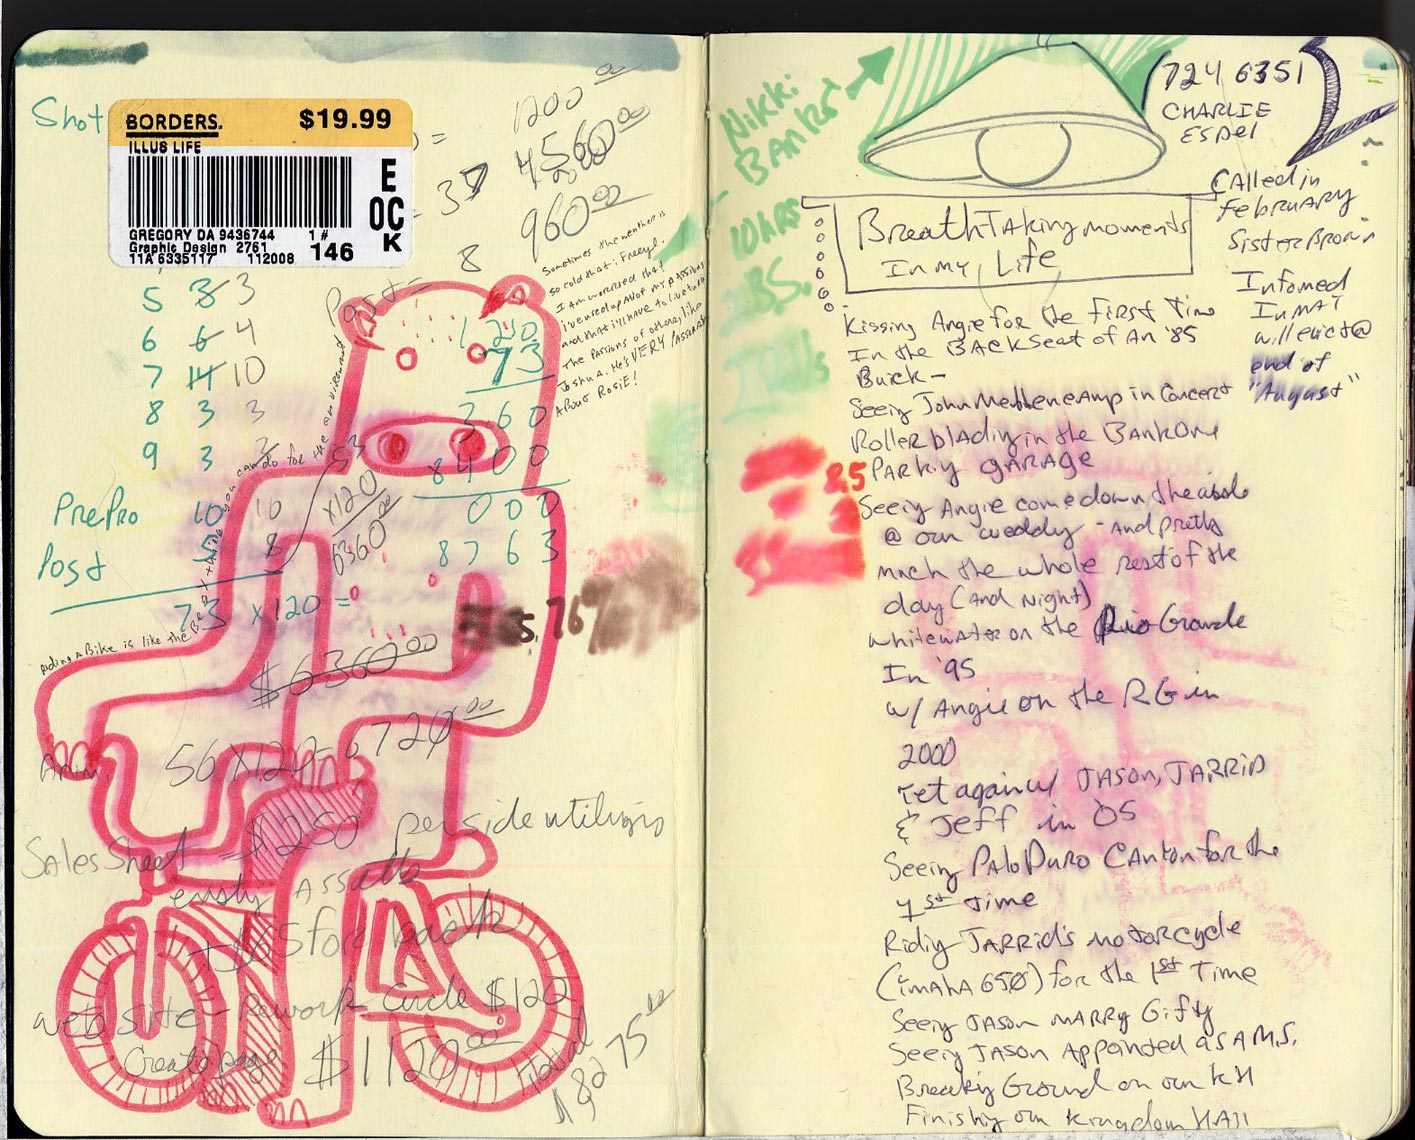 Shot
BORDERS. $19.99
ILLUS LIFE
E
OC
K
GREGORY DA 9436744 1 #
Graphic Design 2761 146
11A 6335117 112008
) =
= 37
1200 00
4560 00
960 00
5 3 3
6 6 4
7 14 10
8 3 3
9 3 3
PrePro 10 10
Post 5 8
73 x 120 =
Post = 8
Sometimes the weather is
so cold that i Freeze.
I Am worried that
i've used up All of my passions
and that i'll have to live through
the passions of others, like
Joshua. He's VERY passionate
About ROSIE!
1 2 0
73
360
8400
000
8763
53
x120
6360 00
Riding a Bike is like the Best thing you can do for the environment
8,760
$6360 00
Anim. 56 x 120 - 6720 00
Sales Sheet - $1250 per side utilizing
existing Assets
+ $65 for back
website - Rework Circle $120
Create page $1120 00
Total
8275 00
Nikki
Banks'
10 hrs
85.
85
724 6351
CHARLIE
Espel
CAlled in
february
Sister Brown
Infomed
In MAT
will evict @
end of
"August"
BreathTaking moments
In my Life
Kissing Angie for the First Time
In the BACKSeat of An '85
Buick -
Seeing John Mellencamp in Concert
Rollerblading in the BankOne
PARKing GARAGE
Seeing Angie come down the aisle
@ our wedding - and pretty
much the whole rest of the
day (And Night)
whitewater on the Rio Grande
In '95
w/ Angie on the RG in
2000
Yet again w/ JASON, JARRID
& Jeff in '05
Seeing PALO DURO CANYON for the
1st Time
Riding JARRID's MOTORCYCLE
(imaha 650) for the 1st Time
Seeing JASON MARRY Gifty
Seeing JASON Appointed as A M.S.
Breaking Ground on our KH
Finishing our Kingdom HAll